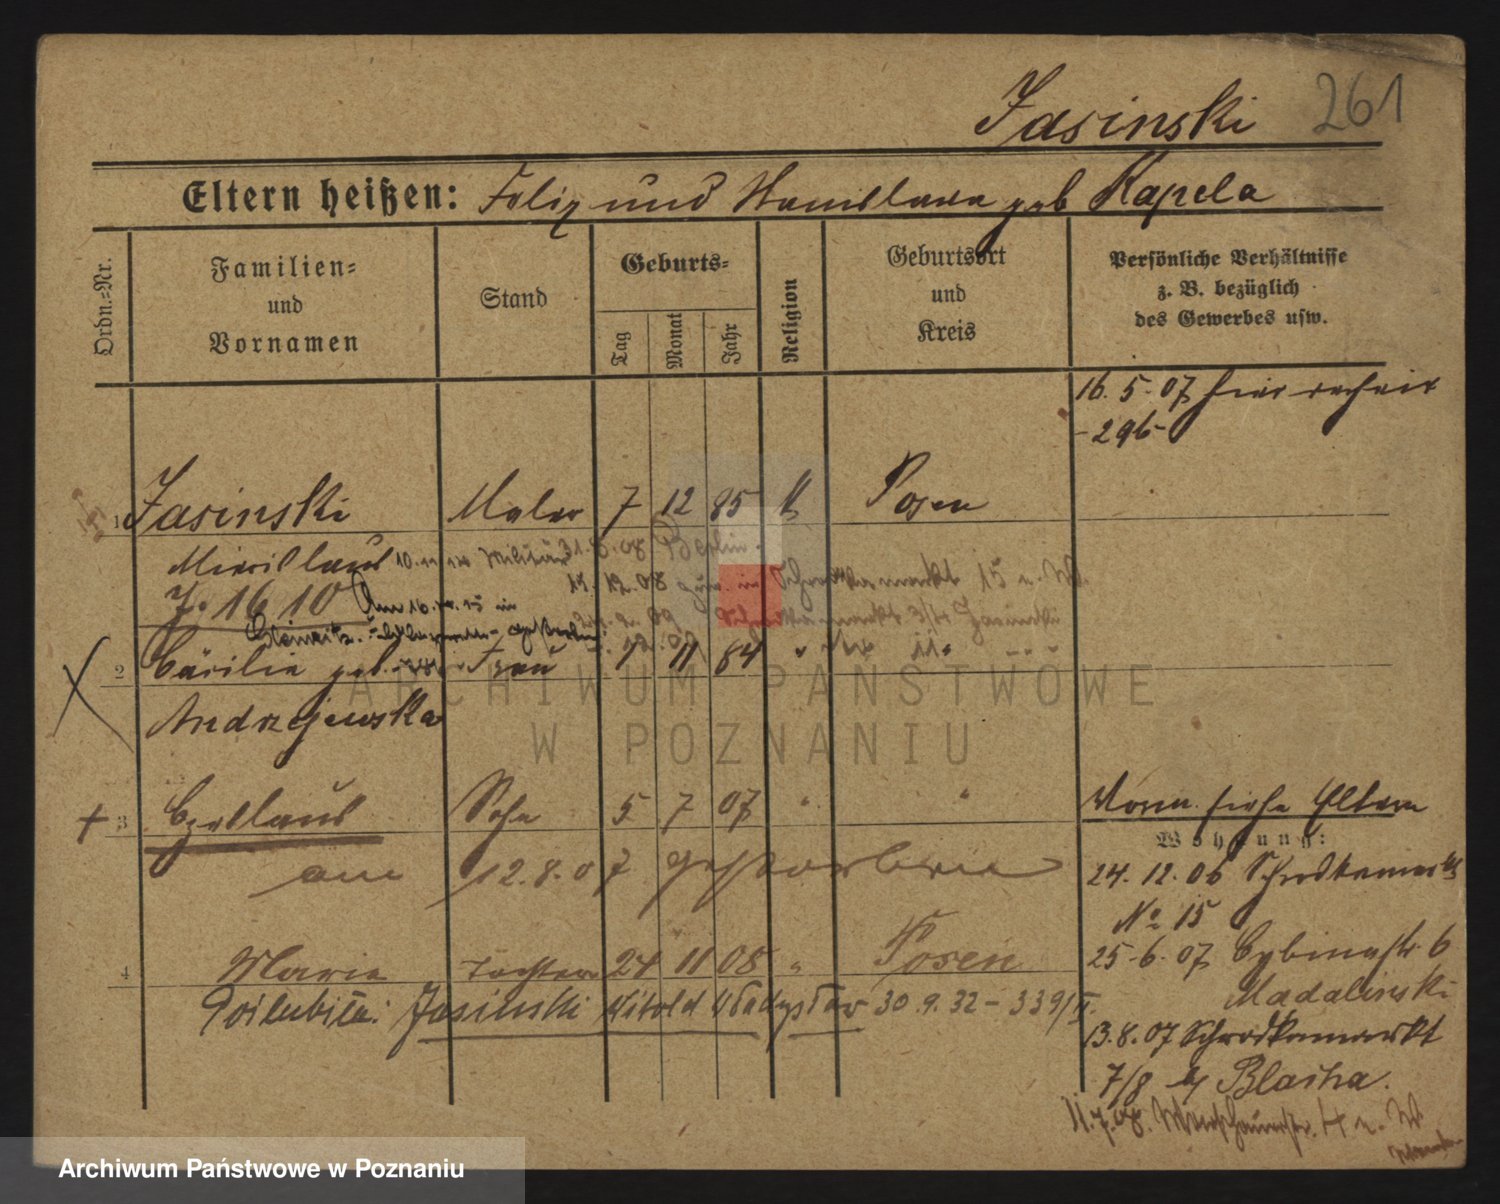 Jasinski 261
Eltern heißen: Felix und Stanislawa geb Kapela
Ordn.-Nr.
Familien-
und
Vornamen
Stand
Geburts-
Tag
Monat
Jahr
Religion
Geburtsort
und
Kreis
Persönliche Verhältnisse
z. B. bezüglich
des Gewerbes usw.
16. 5. 07 hier
-296-
1 Jasinski Maler 7 12 85 k Posen
Mieislaus 10. Militär 31.8.08 Berlin.
J. 16 10 Am 16. in 17. 12. 08 zur. in Schrodkamarkt 15 u. W.
gestorben
2 Cäcilie geb. Frau 1 11 84 "
Andrzejewska
3 Czeslaus Sohn 5 7 07 " "
am 12.8.07 gestorben
Vorm. siehe Eltern
Wohnung:
24. 12. 06 Schrodkamarkt
No 15
25-6-07 Cybinastr. 6
Madalinski
4 Marie Tochter 24 11 08 " Posen
Poślubiła: Jasinski Witold Władysław 30. 9. 32 - 339/II.
13. 8. 07 Schrodkamarkt
7/8 b/ Blasha.
11. 7. 08. Warschauerstr. 4 u. W
ARCHIWUM PAŃSTWOWE
W POZNANIU
Archiwum Państwowe w Poznaniu